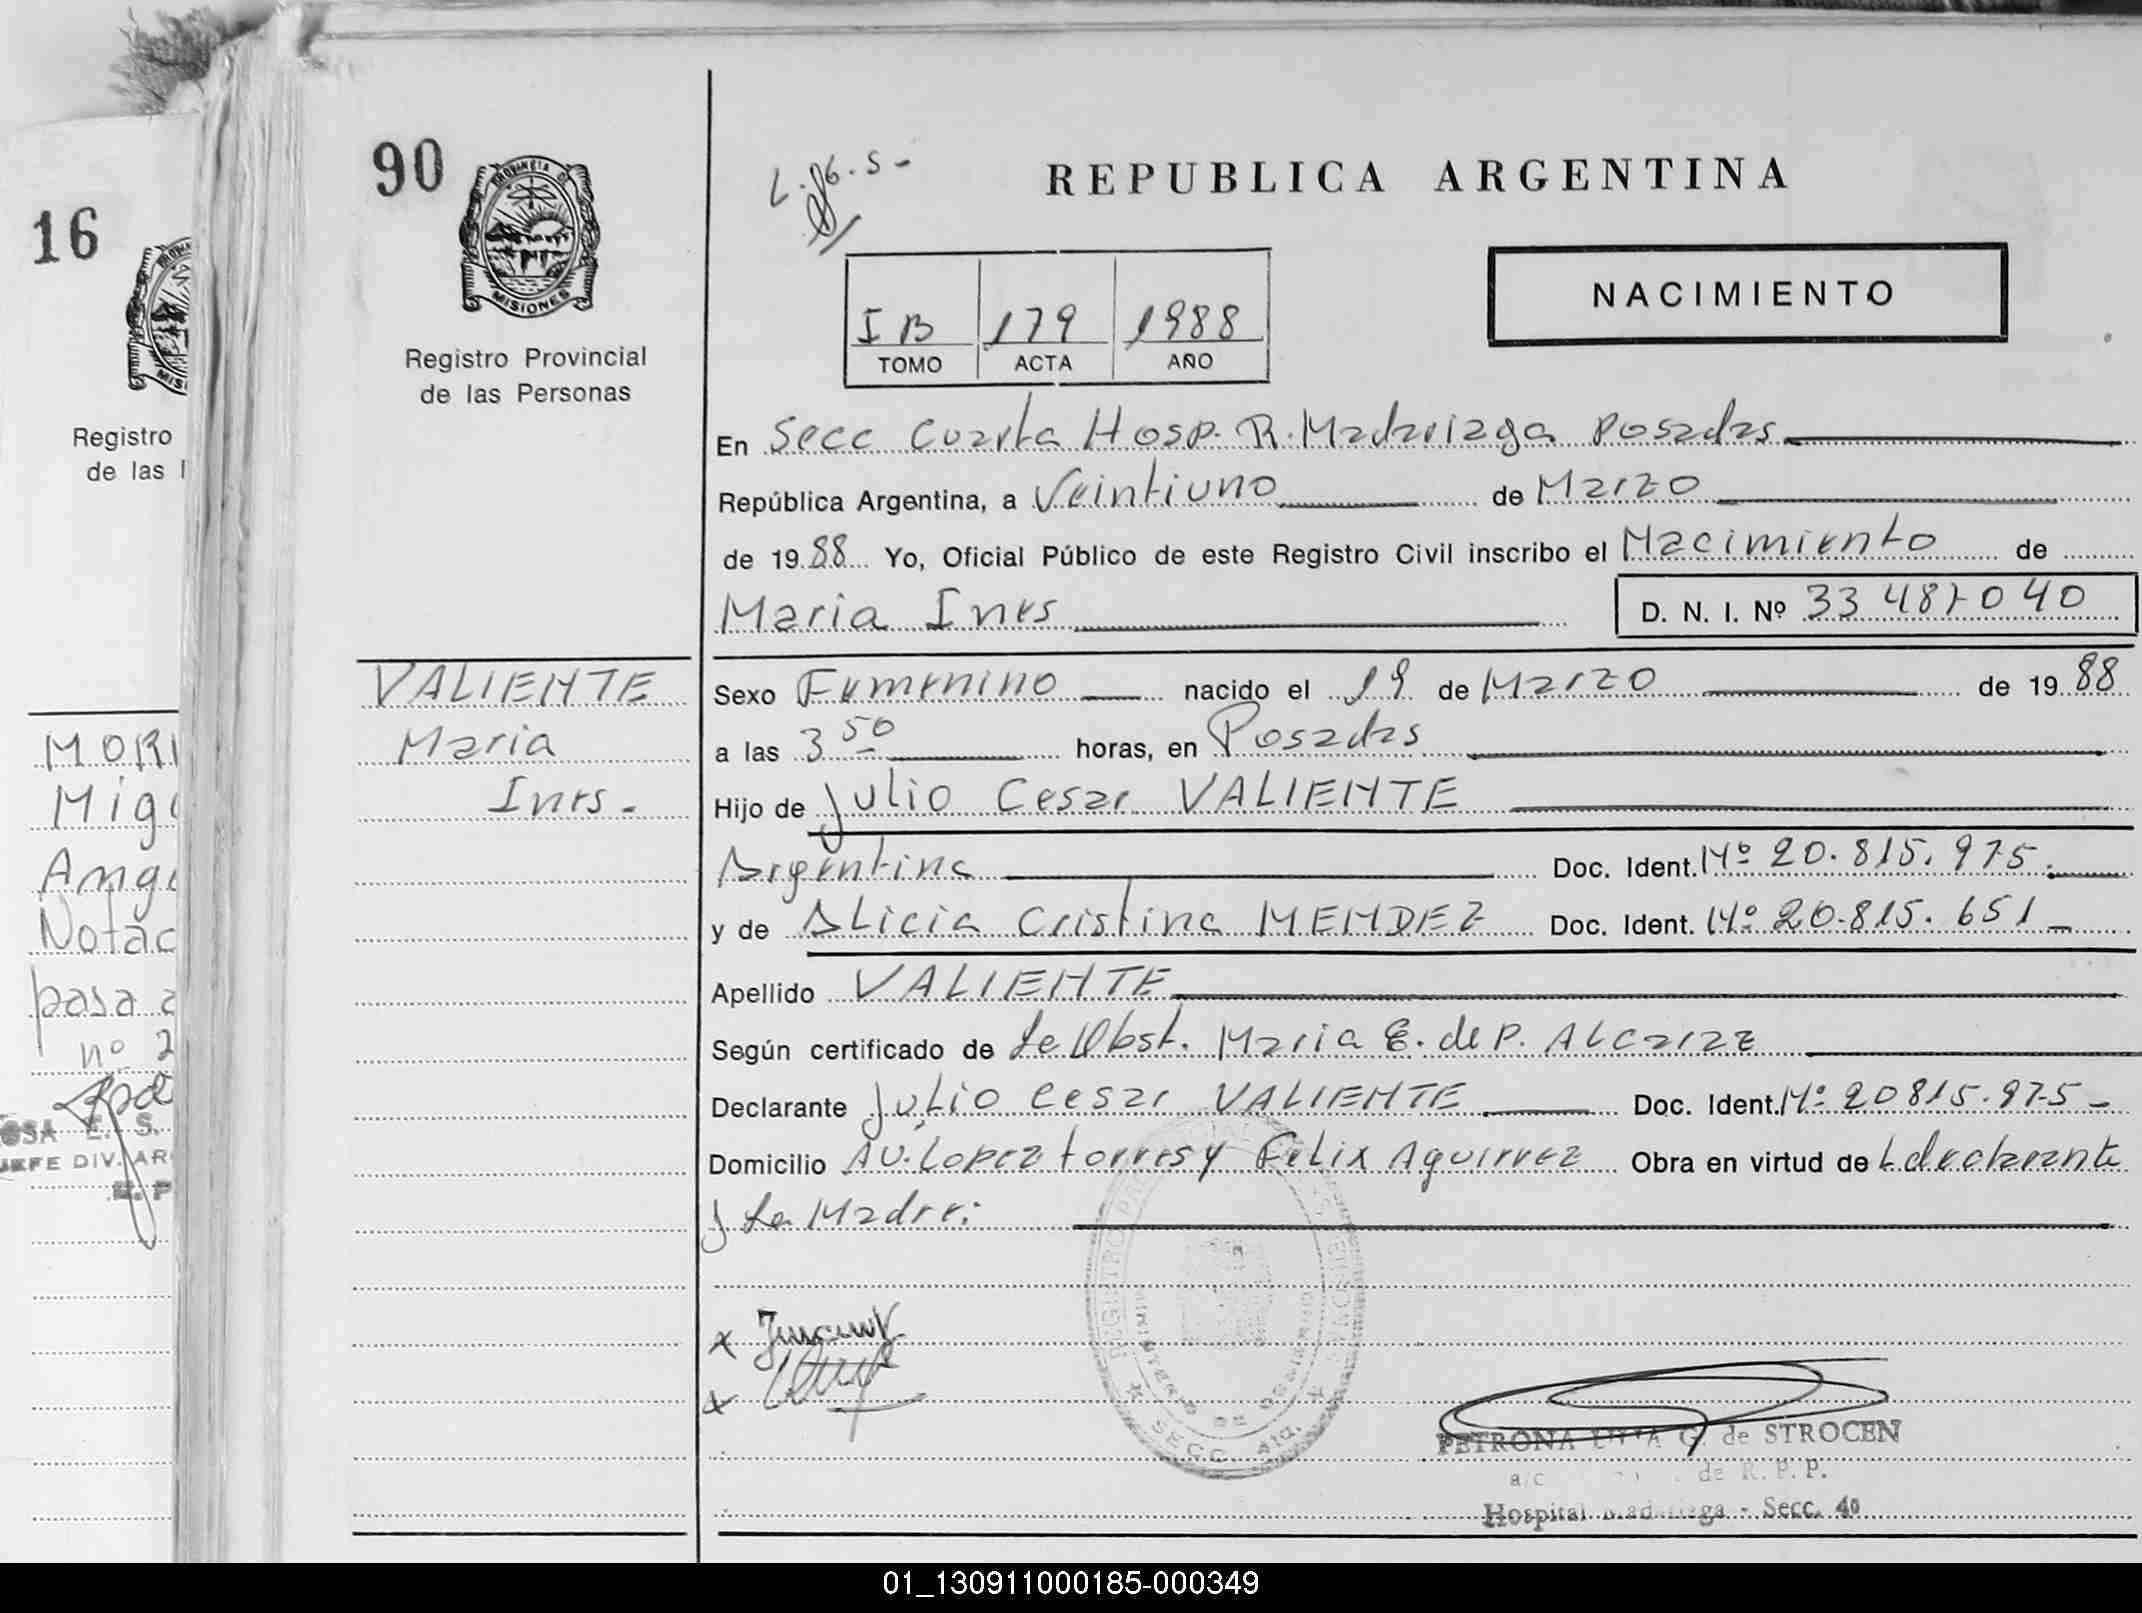 16
Registro
de las
MORI
Migu
Ange
Notac
pasa a
nº 2
OSA E. S.
JEFE DIV. AR
90
PROVINCIA D
MISIONES
Registro Provincial
de las Personas
VALIENTE
Maria
Ines.-
REPUBLICA ARGENTINA
NACIMIENTO
I B 179 1988
TOMO ACTA AÑO
En Secc Cuarta Hosp. R. Madariaga Posadas
República Argentina, a Veintiuno de Marzo
de 1988 Yo, Oficial Público de este Registro Civil inscribo el Nacimiento de
Maria Ines D. N. I. Nº 33 487 040
Sexo Femenino nacido el 19 de Marzo de 1988
a las 3 50 horas, en Posadas
Hijo de Julio Cesar VALIENTE
Argentina Doc. Ident. Nº 20.815.975.
y de Alicia Cristina MENDEZ Doc. Ident. Nº 20.815.651-
Apellido VALIENTE
Según certificado de La Obst. Maria E. de P. Alcaraz
Declarante Julio Cesar VALIENTE Doc. Ident. Nº 20815.975-
Domicilio Av. Lopez torres y Felix Aguirrez Obra en virtud de L declarante
y La Madre:
x
x
REGISTRO PROVINCIAL DE LAS PERSONAS
MINISTERIO DE GOBIERNO
SECC. 4ta.
PETRONA G. de STROCEN
a/c de R. P. P.
Hospital Madariaga - Secc. 4ª
01_130911000185-000349